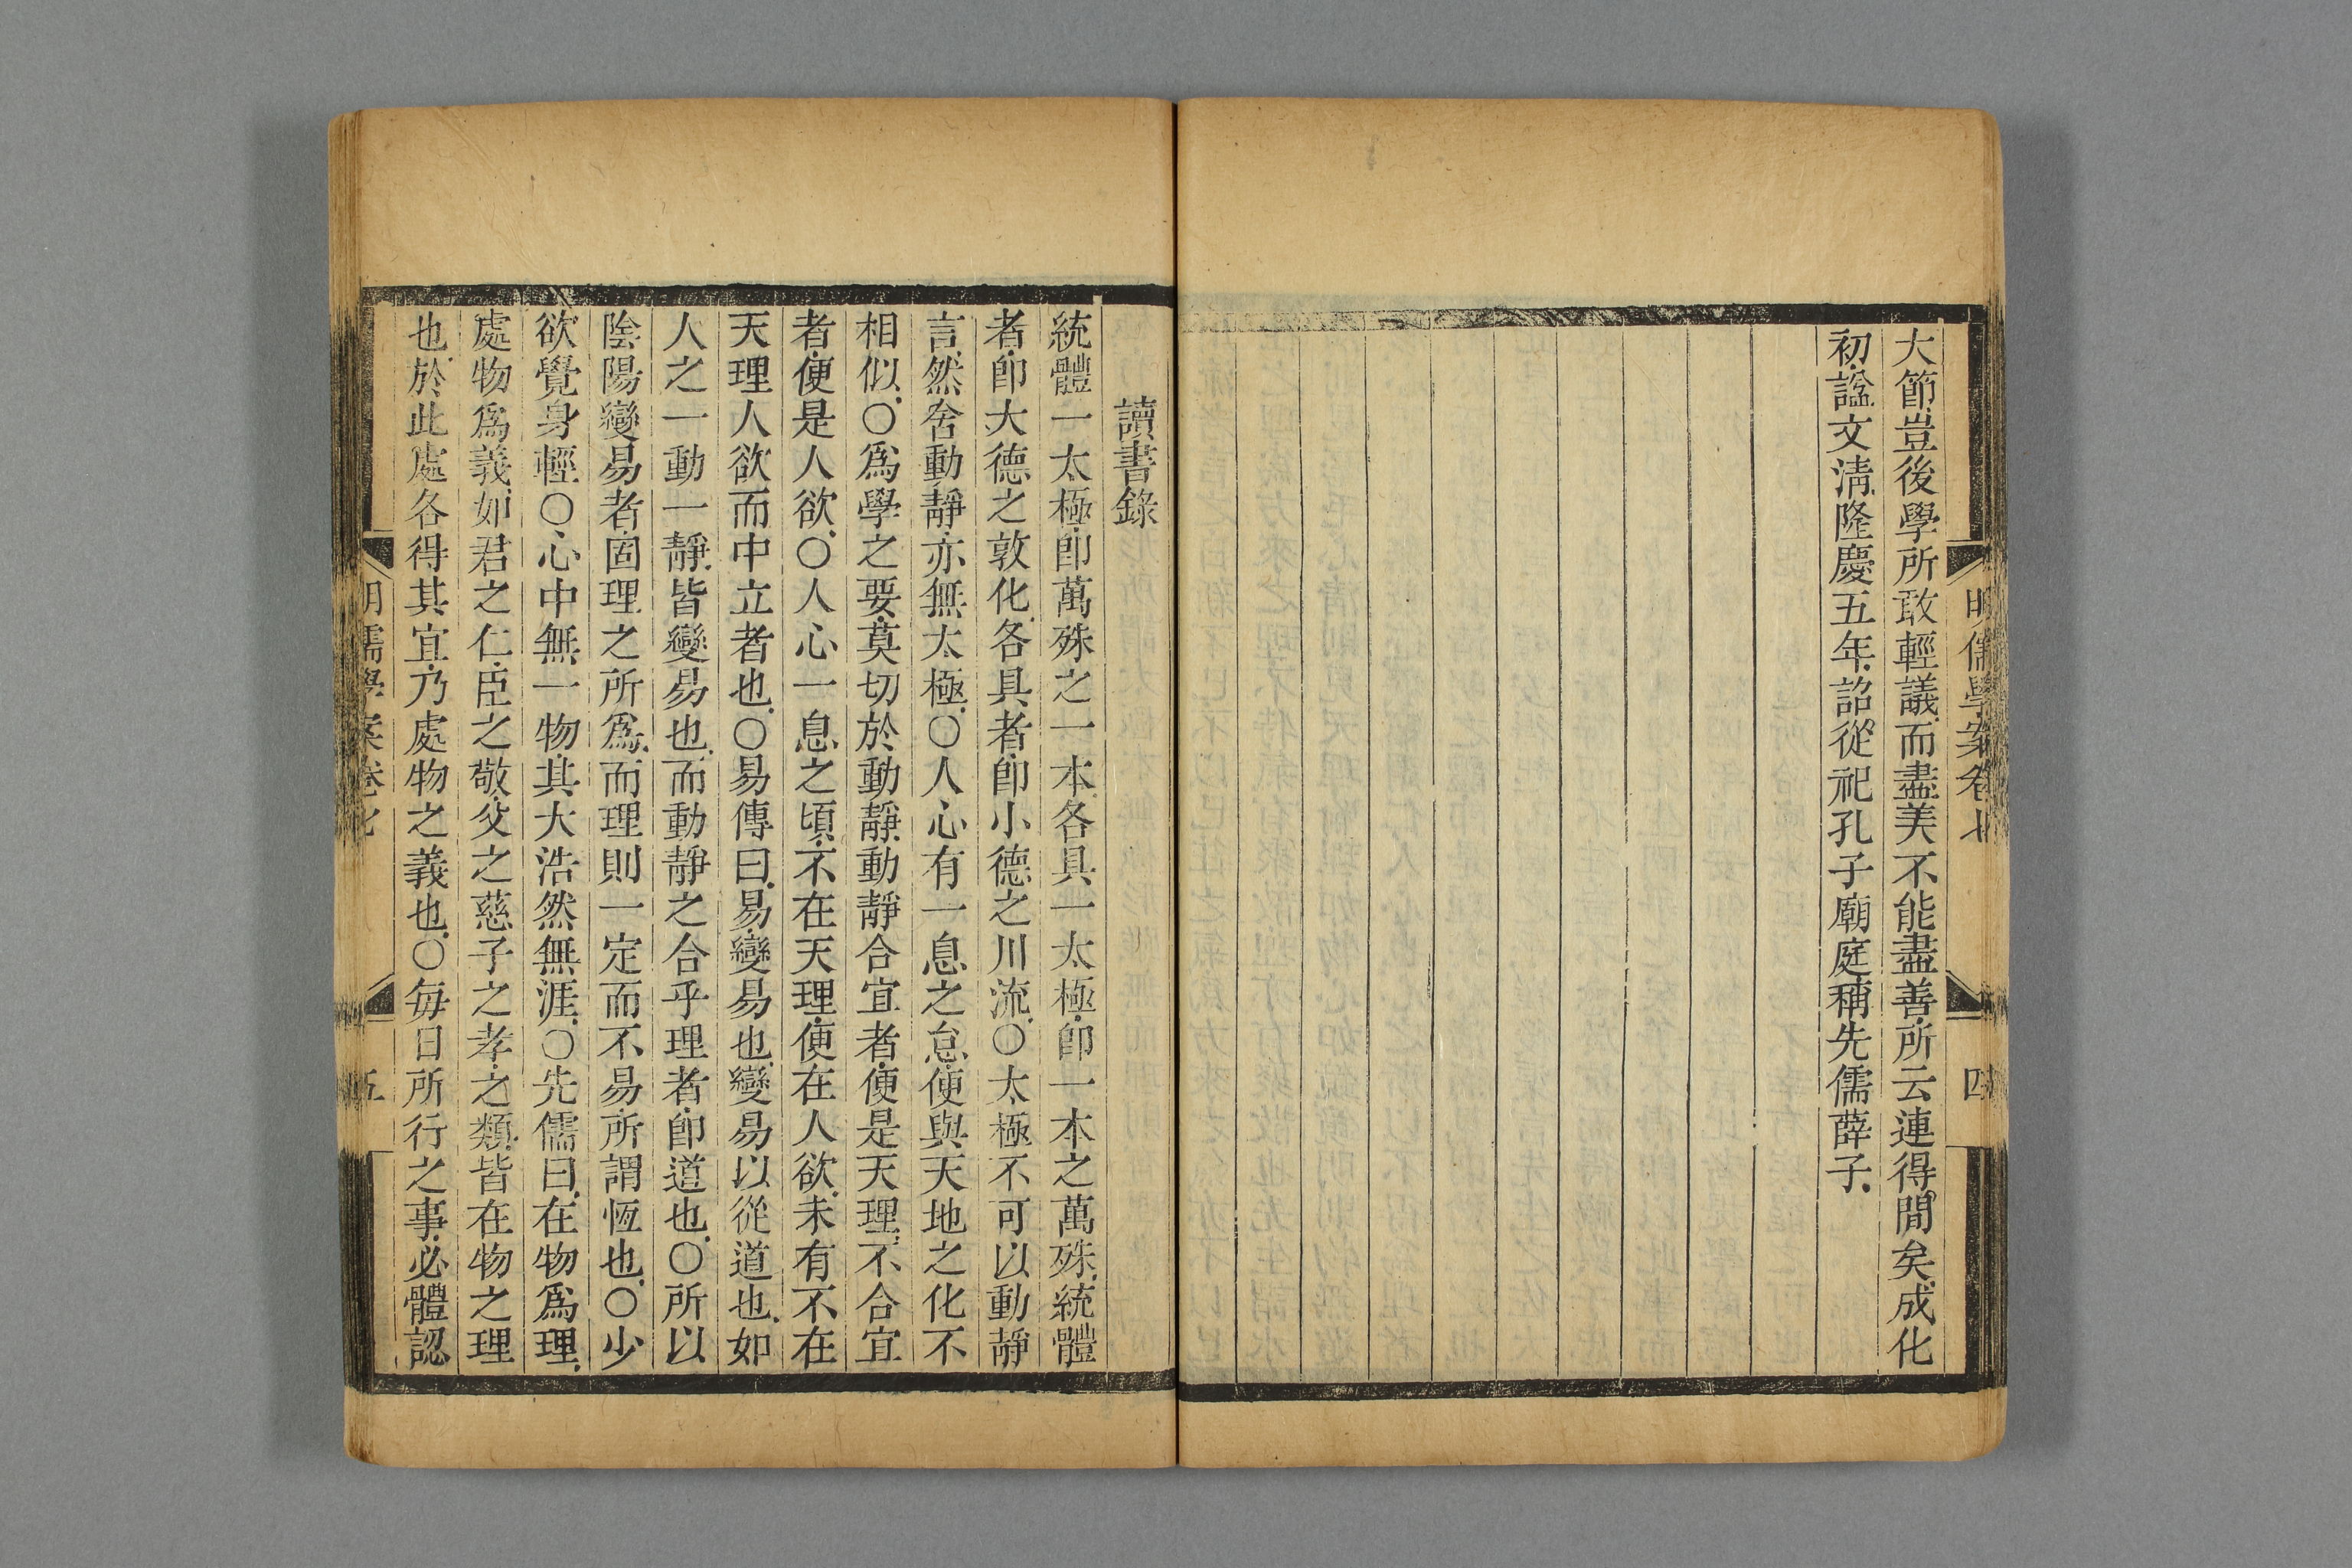 明儒學案卷七
四
大節豈後學所敢輕議而盡美不能盡善所云連得閒矣成化
初諡文淸隆慶五年詔從祀孔子廟庭稱先儒薛子
讀書錄
統體一太極卽萬殊之一本各具一太極卽一本之萬殊統體
者卽大德之敦化各具者卽小德之川流○太極不可以動靜
言然舍動靜亦無太極○人心有一息之怠便與天地之化不
相似○爲學之要莫切於動靜動靜合宜者便是天理不合宜
者便是人欲○人心一息之頃不在天理便在人欲未有不在
天理人欲而中立者也○易傳曰易變易也變易以從道也如
人之一動一靜皆變易也而動靜之合乎理者卽道也○所以
陰陽變易者固理之所爲而理則一定而不易所謂恆也○少
欲覺身輕○心中無一物其大浩然無涯○先儒曰在物爲理
處物爲義如君之仁臣之敬父之慈子之孝之類皆在物之理
也於此處各得其宜乃處物之義也○每日所行之事必體認
明儒學案卷七
五